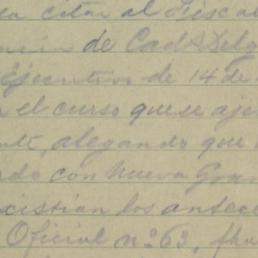 a citar al Fisca
de Cad. & Delg
Ejecutivo de 14 de
el curso que se aje
alegando que
do con Nueva Gran
existian los antece
Oficial nº 63,